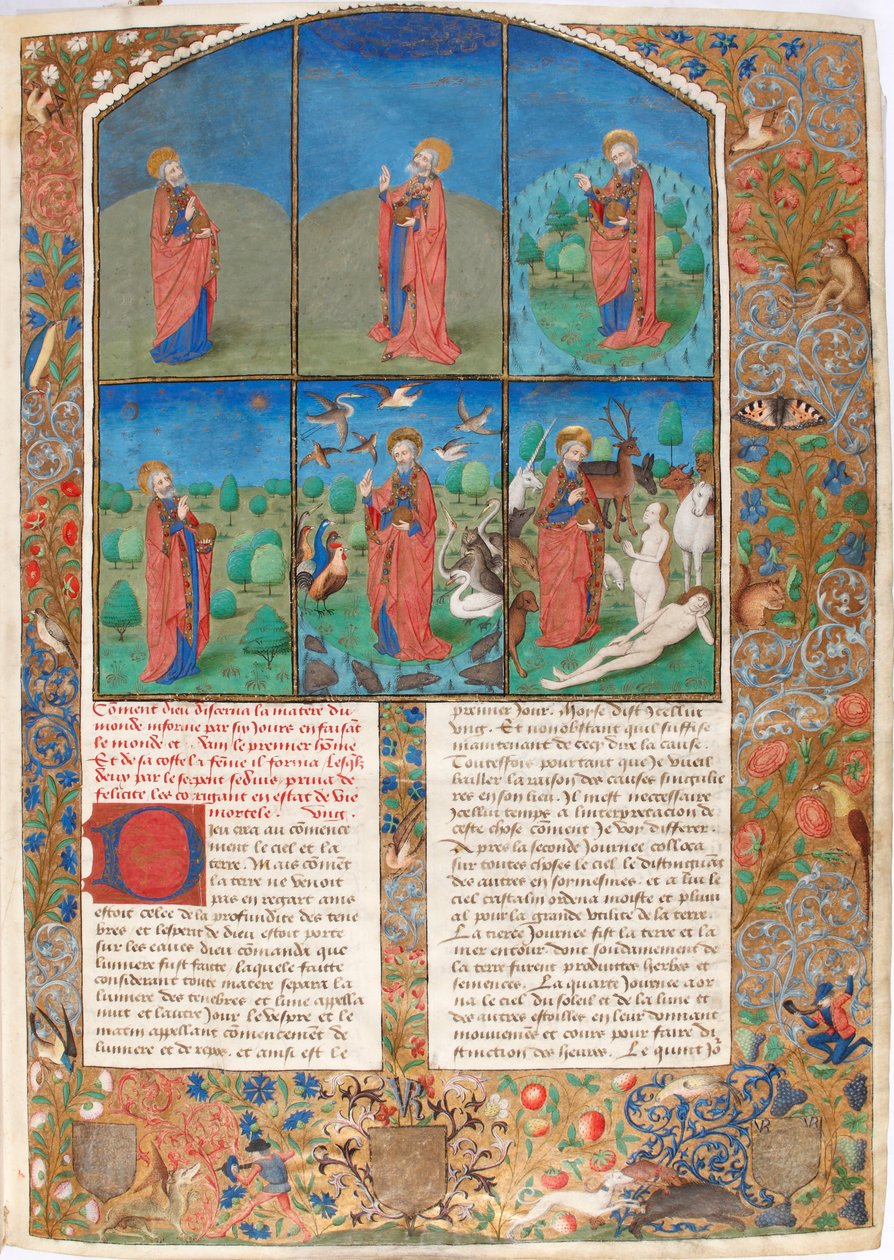 Coment dieu discerna la matere du
monde informe par six jours en faisāt
le monde et dam le premier hōme
Et de sa coste la fēme il forma Lesqlz
deux par le serpent seduis priva de
felicite les corrigant en estat de vie
mortele . Ung .
Dieu crea au cōmence
ment le ciel et la
terre . Mais cōmēt
la terre ne venoit
pas en regart ains
estoit celee de la profundite des tene
bres et lesperit de dieu estoit porte
sur les eaues dieu cōmanda que
lumiere fust faitte , laquele faitte
considerant toute matere separa la
lumiere des tenebres et lune appella
nuit et lautre jour le vespre et le
matin appellant cōmencement de
lumiere et de repos . et ainsi est le
premier jour . Moyse dist icellui
ung . Et non obstant quil suffise
maintenant de cecy dire la cause .
Touteffois pourtant que je vueil
baillier la raison des causes singulie
res en son lieu . Il mest necessaire
icellui temps a linterpretacion de
ceste chose cōment je voy differer .
Apres la seconde journee colloca
sur toutes choses le ciel le distinguāt
des autres en soy mesmes . et a lui le
ciel cristalin ordena moiste et pluvi
al pour la grande utilite de la terre .
La tierce journee fist la terre et la
mer entour . dont soudainement de
la terre furent produittes herbes et
semences . La quarte journee aor
na le ciel du soleil et de la lune et
des autres estoilles en leur donnant
mouvemēs et cours pour faire di
stinction des heures . Le quint jo
VR
VR VR